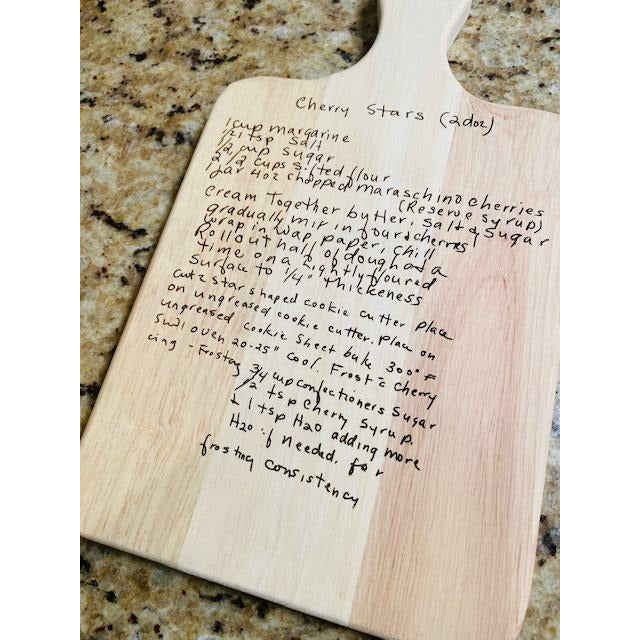 Cherry Stars (2doz)
1 cup margarine
1/2 tsp Salt
1/2 cup Sugar
2 1/2 cups sifted flour
1 jar 4oz chopped maraschino cherries
(Reserve syrup)
Cream Together butter, Salt & Sugar
gradually mix in flour & cherries
wrap in wap paper, chill
Roll out half of dough at a
time on a lightly floured
Surface to 1/4" thickeness
Cut 2 star shaped cookie cutter place
on ungreased cookie cutter. Place on
ungreased cookie sheet bake 300° F
oven 20-25" cool. Frost = Cherry
cing - Frosting 3/4 cup confectioners Sugar
1/2 tsp Cherry Syrup.
+ 1 tsp H2O adding more
H2O if needed, for
frosting consistency